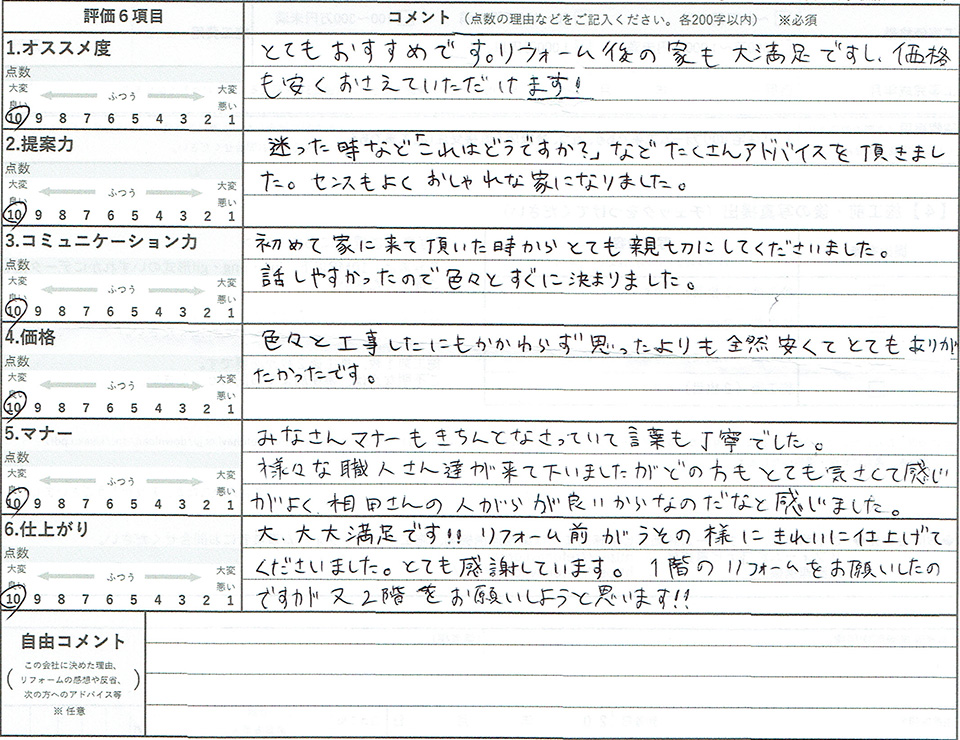 評価６項目
コメント （点数の理由などをご記入ください。各200字以内） ※必須
1.オススメ度
点数
大変 良い ふつう 大変 悪い
10 9 8 7 6 5 4 3 2 1
とてもおすすめです。リフォーム後の家も大満足ですし、価格
も安くおさえていただけます！
2.提案力
点数
大変 良い ふつう 大変 悪い
10 9 8 7 6 5 4 3 2 1
迷った時など「これはどうですか？」などたくさんアドバイスを頂きまし
た。センスもよくおしゃれな家になりました。
3.コミュニケーション力
点数
大変 良い ふつう 大変 悪い
10 9 8 7 6 5 4 3 2 1
初めて家に来て頂いた時からとても親切にしてくださいました。
話しやすかったので色々とすぐに決まりました。
4.価格
点数
大変 良い ふつう 大変 悪い
10 9 8 7 6 5 4 3 2 1
色々と工事したにもかかわらず思ったよりも全然安くてとてもありが
たかったです。
5.マナー
点数
大変 良い ふつう 大変 悪い
10 9 8 7 6 5 4 3 2 1
みなさんマナーもきちんとなさっていて言葉も丁寧でした。
様々な職人さん達が来て下いましたがどの方もとても気さくて感じ
がよく、相田さんの人がらが良いからなのだなと感じました。
6.仕上がり
点数
大変 良い ふつう 大変 悪い
10 9 8 7 6 5 4 3 2 1
大、大大満足です!! リフォーム前がうその様にきれいに仕上げて
くださいました。とても感謝しています。1階のリフォームをお願いしたの
ですが又2階をお願いしようと思います!!
自由コメント
（この会社に決めた理由、
リフォームの感想や反省、
次の方へのアドバイス等）
※ 任意